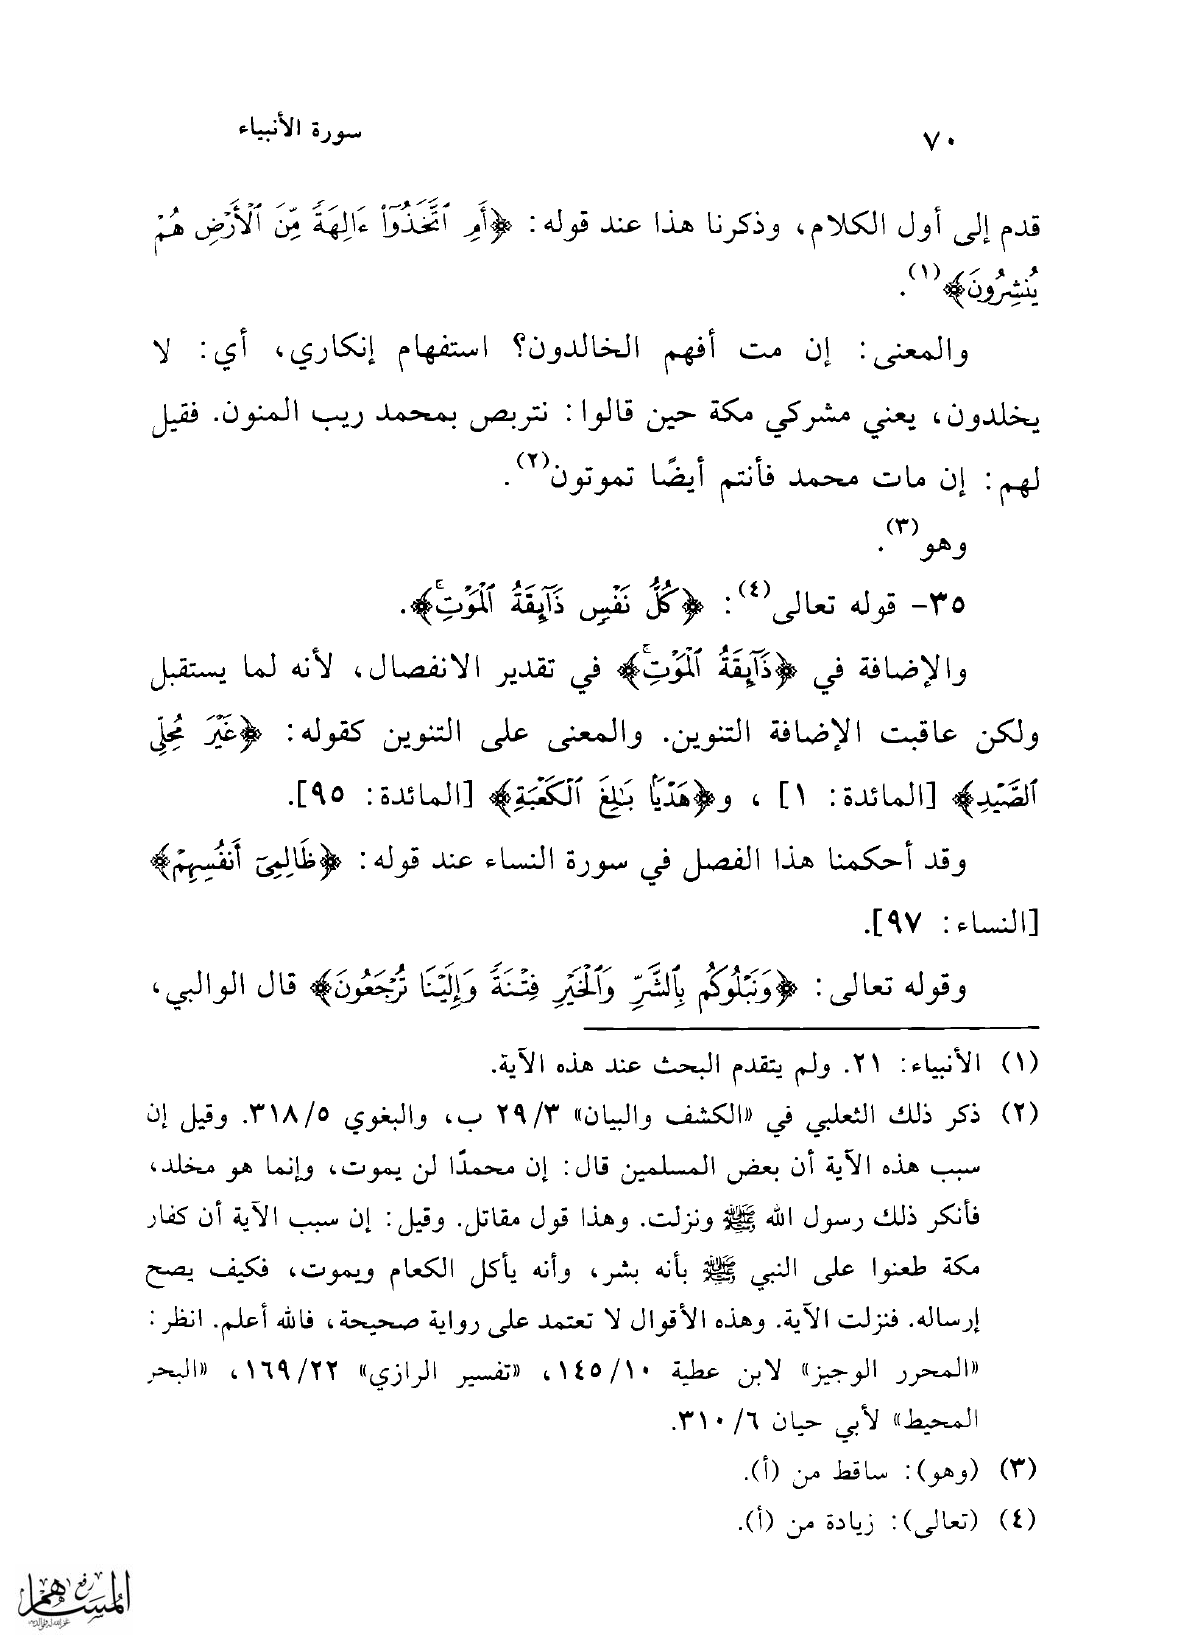 ٧٠ سورة الأنبياء
قدم إلى أول الكلام، وذكرنا هذا عند قوله: ﴿أَمِ ٱتَّخَذُوٓا۟ ءَالِهَةً مِّنَ ٱلْأَرْضِ هُمْ
يُنشِرُونَ﴾(١).
والمعنى: إن مت أفهم الخالدون؟ استفهام إنكاري، أي: لا
يخلدون، يعني مشركي مكة حين قالوا: نتربص بمحمد ريب المنون. فقيل
لهم: إن مات محمد فأنتم أيضًا تموتون(٢).
وهو(٣).
٣٥- قوله تعالى(٤): ﴿كُلُّ نَفْسٍ ذَآئِقَةُ ٱلْمَوْتِ ۚ﴾.
والإضافة في ﴿ذَآئِقَةُ ٱلْمَوْتِ ۚ﴾ في تقدير الانفصال، لأنه لما يستقبل
ولكن عاقبت الإضافة التنوين. والمعنى على التنوين كقوله: ﴿غَيْرَ مُحِلِّى
ٱلصَّيْدِ﴾ [المائدة: ١] ، و﴿هَدْيًۢا بَٰلِغَ ٱلْكَعْبَةِ﴾ [المائدة: ٩٥].
وقد أحكمنا هذا الفصل في سورة النساء عند قوله: ﴿ظَالِمِىٓ أَنفُسِهِمْ﴾
[النساء: ٩٧].
وقوله تعالى: ﴿وَنَبْلُوكُم بِٱلشَّرِّ وَٱلْخَيْرِ فِتْنَةً وَإِلَيْنَا تُرْجَعُونَ﴾ قال الوالبي،
(١) الأنبياء: ٢١. ولم يتقدم البحث عند هذه الآية.
(٢) ذكر ذلك الثعلبي في «الكشف والبيان» ٢٩/٣ ب، والبغوي ٣١٨/٥. وقيل إن
سبب هذه الآية أن بعض المسلمين قال: إن محمدًا لن يموت، وإنما هو مخلد،
فأنكر ذلك رسول الله ﷺ ونزلت. وهذا قول مقاتل. وقيل: إن سبب الآية أن كفار
مكة طعنوا على النبي ﷺ بأنه بشر، وأنه يأكل الكعام ويموت، فكيف يصح
إرساله. فنزلت الآية. وهذه الأقوال لا تعتمد على رواية صحيحة، فالله أعلم. انظر:
«المحرر الوجيز» لابن عطية ١٤٥/١٠، «تفسير الرازي» ١٦٩/٢٢، «البحر
المحيط» لأبي حيان ٣١٠/٦.
(٣) (وهو): ساقط من (أ).
(٤) (تعالى): زيادة من (أ).